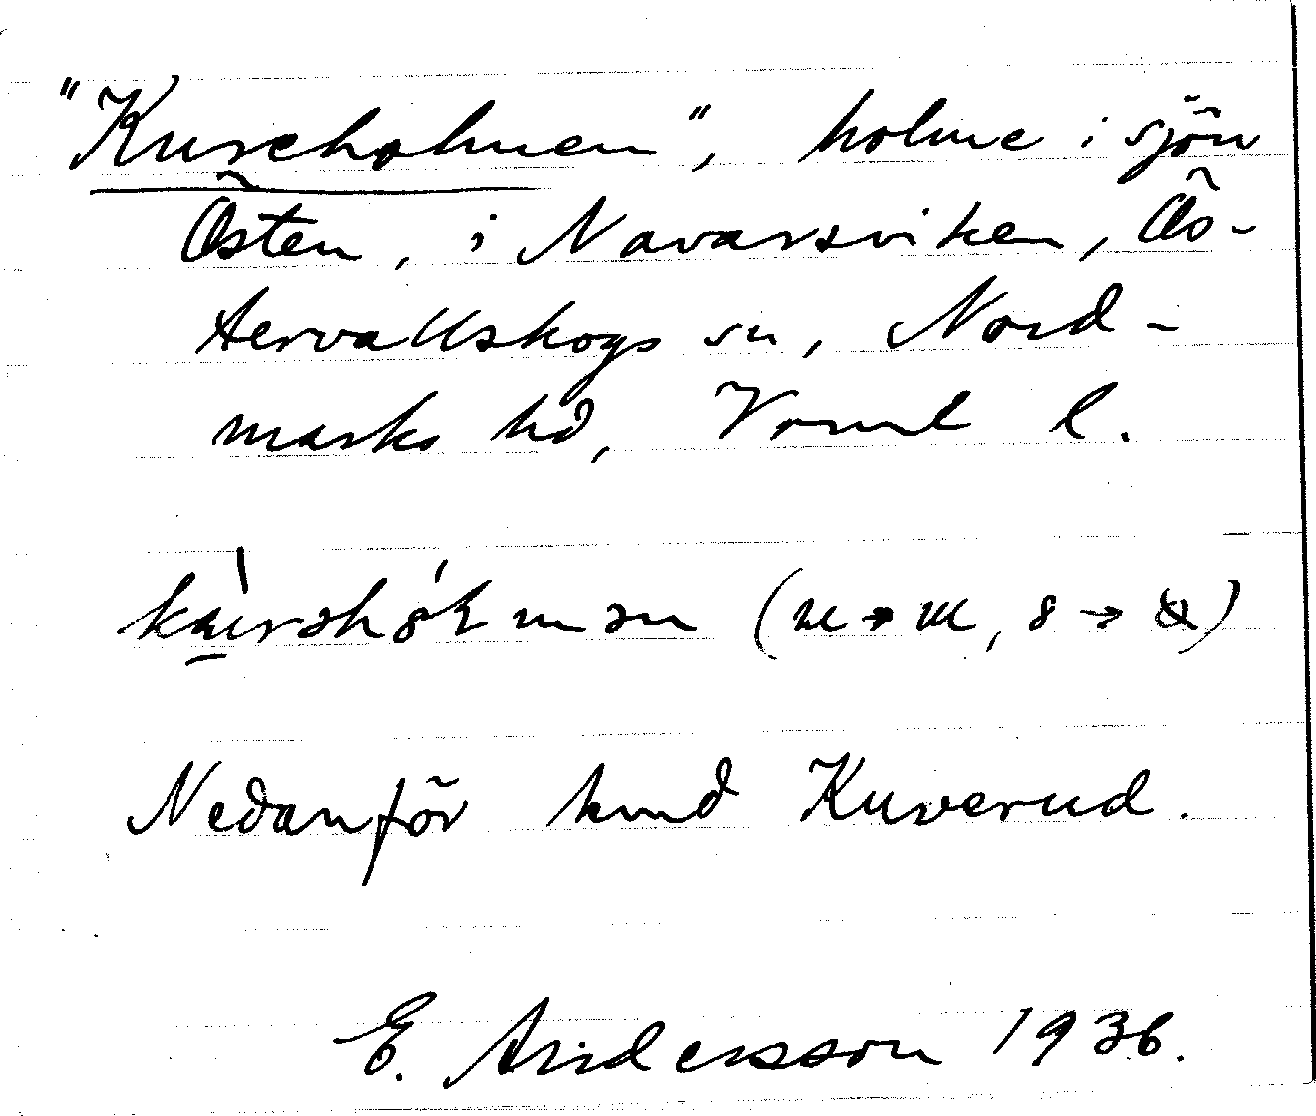 "Kuveholmen", holme i sjön
Östen, i Navarsviken, Ös-
tervallskogs sn, Nord-
marks hd, Vrml l.
Nedanför hmd Kuverud.
E. Andersson 1936.